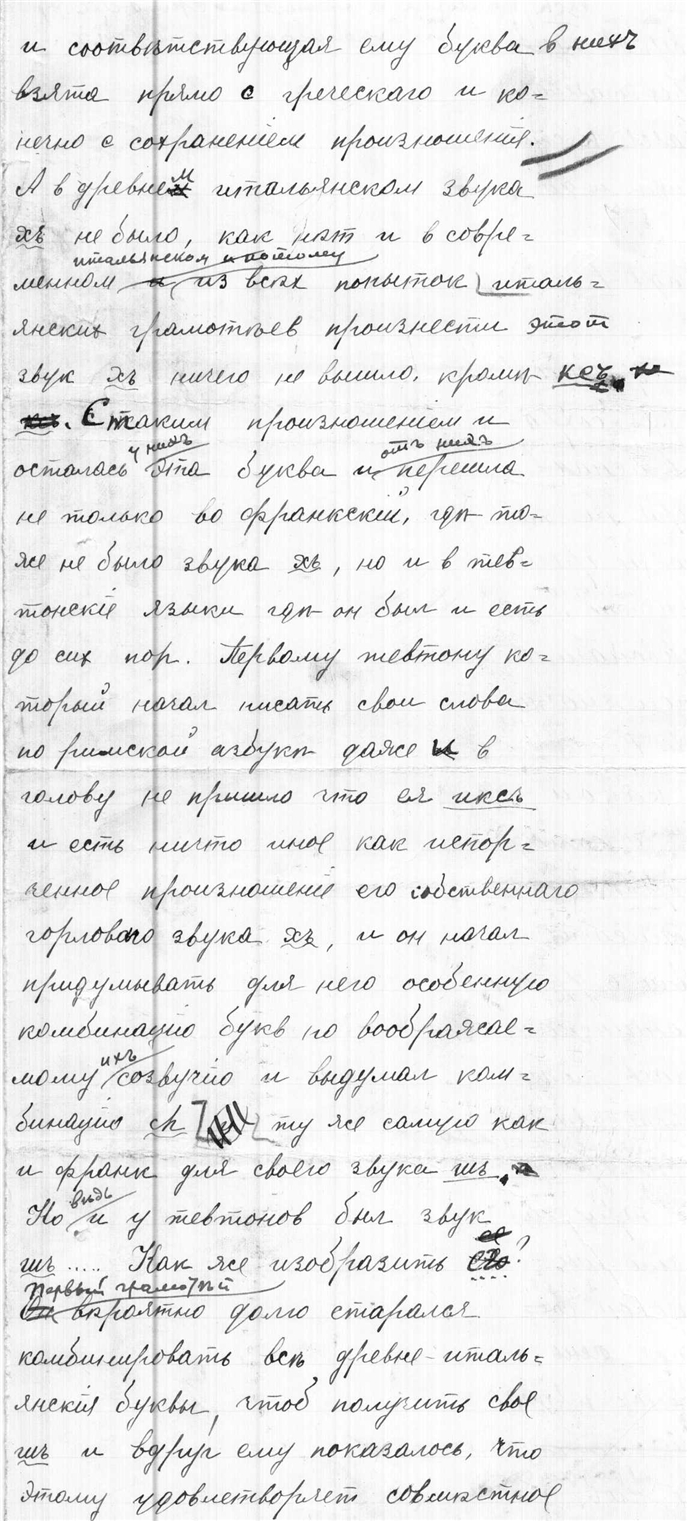 и соотвѣтствующая ему буква в нихъ
взята прямо с греческаго и ко=
нечно с сохраненіем произношенія.
А в древнем итальянском звука
хъ не было, как нѣт и в совре=
итальянском и потому
менном из всѣх попыток италь=
янских грамотѣев произнести этот
звук хъ ничего не вышло, кромѣ ксъ.
С таким произношеніем и
у нихъ отъ нихъ
осталась эта буква и перешла
не только во франкскій, гдѣ то=
же не было звука хъ, но и в тев=
тонскіе языки гдѣ он был и есть
до сих пор. Первому тевтону ко=
торый начал писать свои слова
по римской азбукѣ даже и в
голову не пришло что ея иксъ
и есть ничто иное как испор=
ченное произношеніе его собственнаго
горловаго звука хъ, и он начал
придумывать для него особенную
комбинацію букв по воображае=
ихъ
мому созвучію и выдумал ком=
бинацію ch ту же самую как
и франк для своего звука шъ.
вѣдь
Но и у тевтонов был звук
шъ..... Как же изобразить его?
Первый грамотѣй
вѣроятно долго старался
комбинировать всѣ древне-италь=
янскія буквы, чтоб получить свое
шъ и вдруг ему показалось, что
этому удовлетворяет совмѣстное